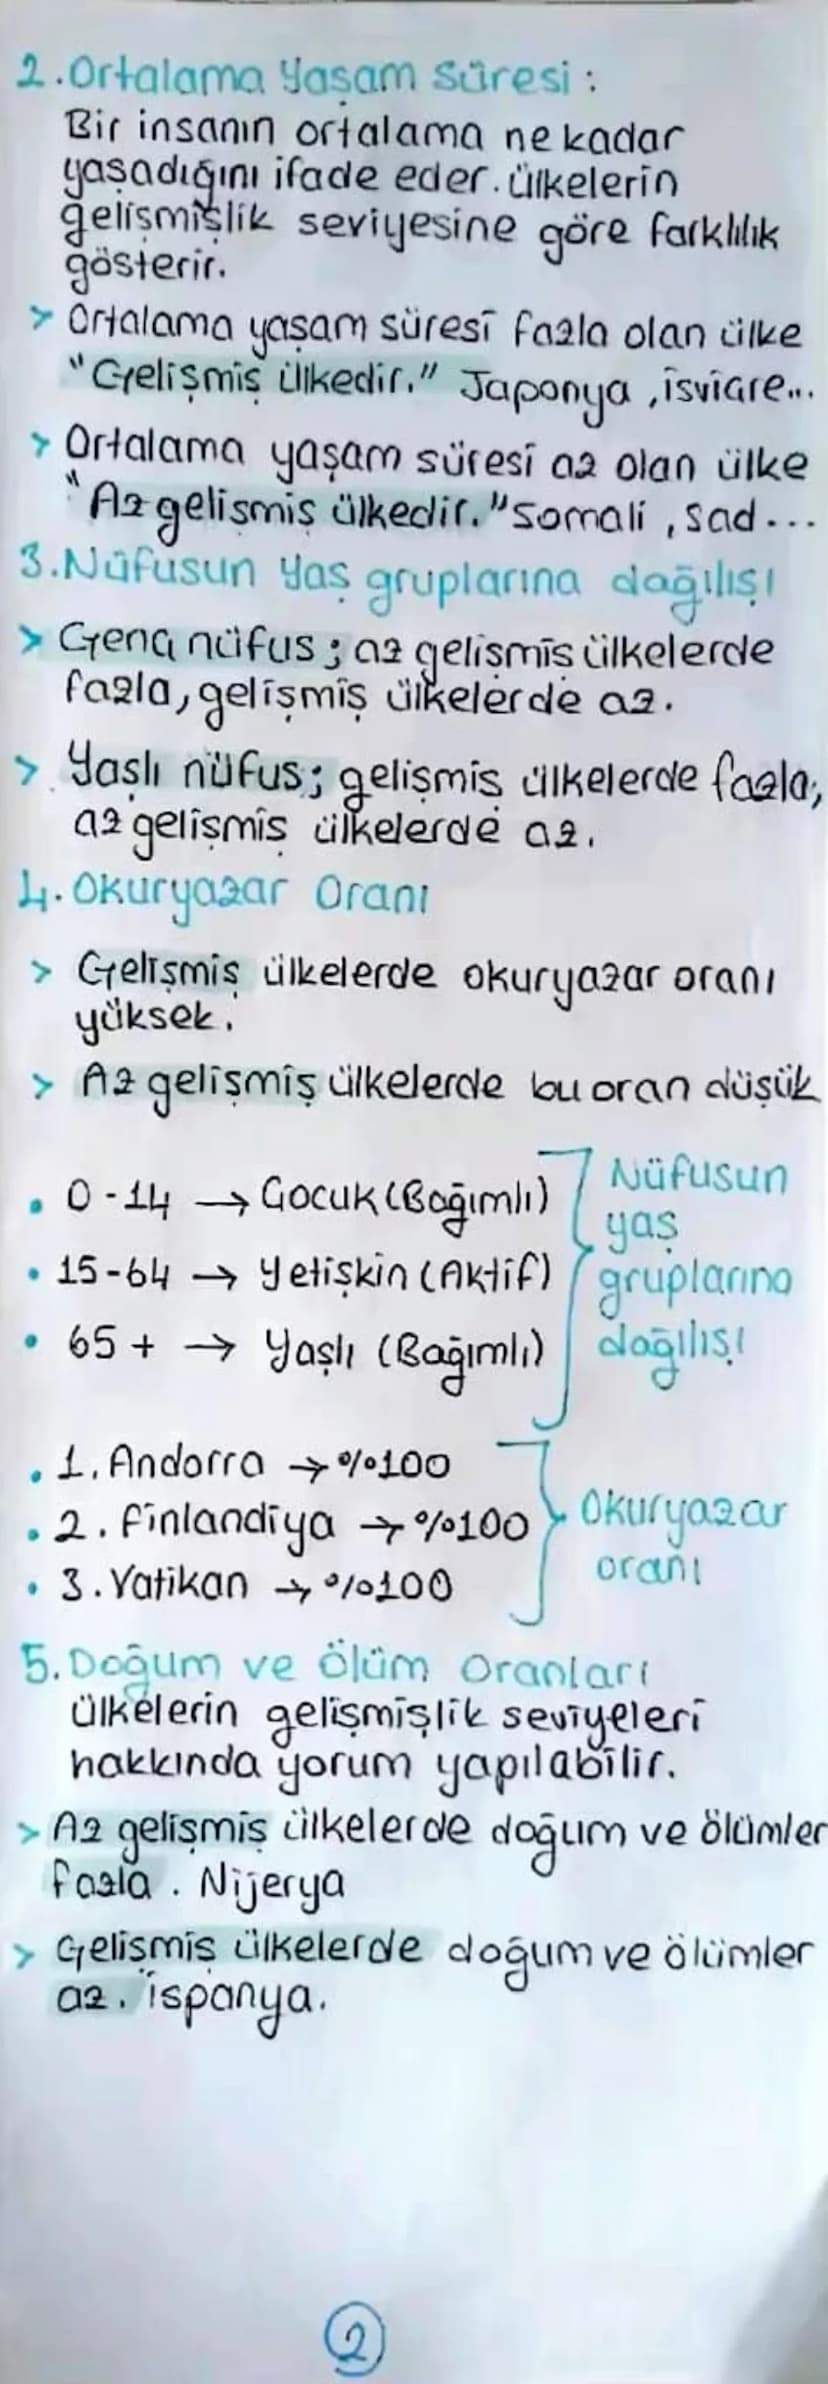 2. Ortalama Yaşam Süresi :
Bir insanın ortalama ne kadar
yaşadığını ifade eder. ülkelerin
gelişmişlik seviyesine göre farklılık
gösterir.
> Ortalama yaşam süresi fazla olan ülke
"Gelişmiş ülkedir." Japonya, isviçre...
> Ortalama yaşam süresi az olan ülke
"Az gelişmiş ülkedir." Somali, sad...
3. Nüfusun Yaş gruplarına dağılışı
> Genç nüfus ; az gelişmiş ülkelerde
fazla, gelişmiş ülkelerde az.
> Yaşlı nüfus; gelişmiş ülkelerde fazla,
az gelişmiş ülkelerde az.
4. Okuryazar Oranı
> Gelişmiş ülkelerde okuryazar oranı
yüksek.
> Az gelişmiş ülkelerde bu oran düşük
• 0-14 → Çocuk (Bağımlı)
• 15-64 → Yetişkin (Aktif)
• 65+ → Yaşlı (Bağımlı)
Nüfusun
yaş
gruplarına
dağılışı
• 1. Andorra → %100
• 2. finlandiya → %100
• 3. Vatikan → %100
Okuryazar
oranı
5. Doğum ve Ölüm Oranları
ülkelerin gelişmişlik seviyeleri
hakkında yorum yapılabilir.
> Az gelişmiş ülkelerde doğum ve ölümler
fazla. Nijerya
> Gelişmiş ülkelerde doğum ve ölümler
az. ispanya.
2